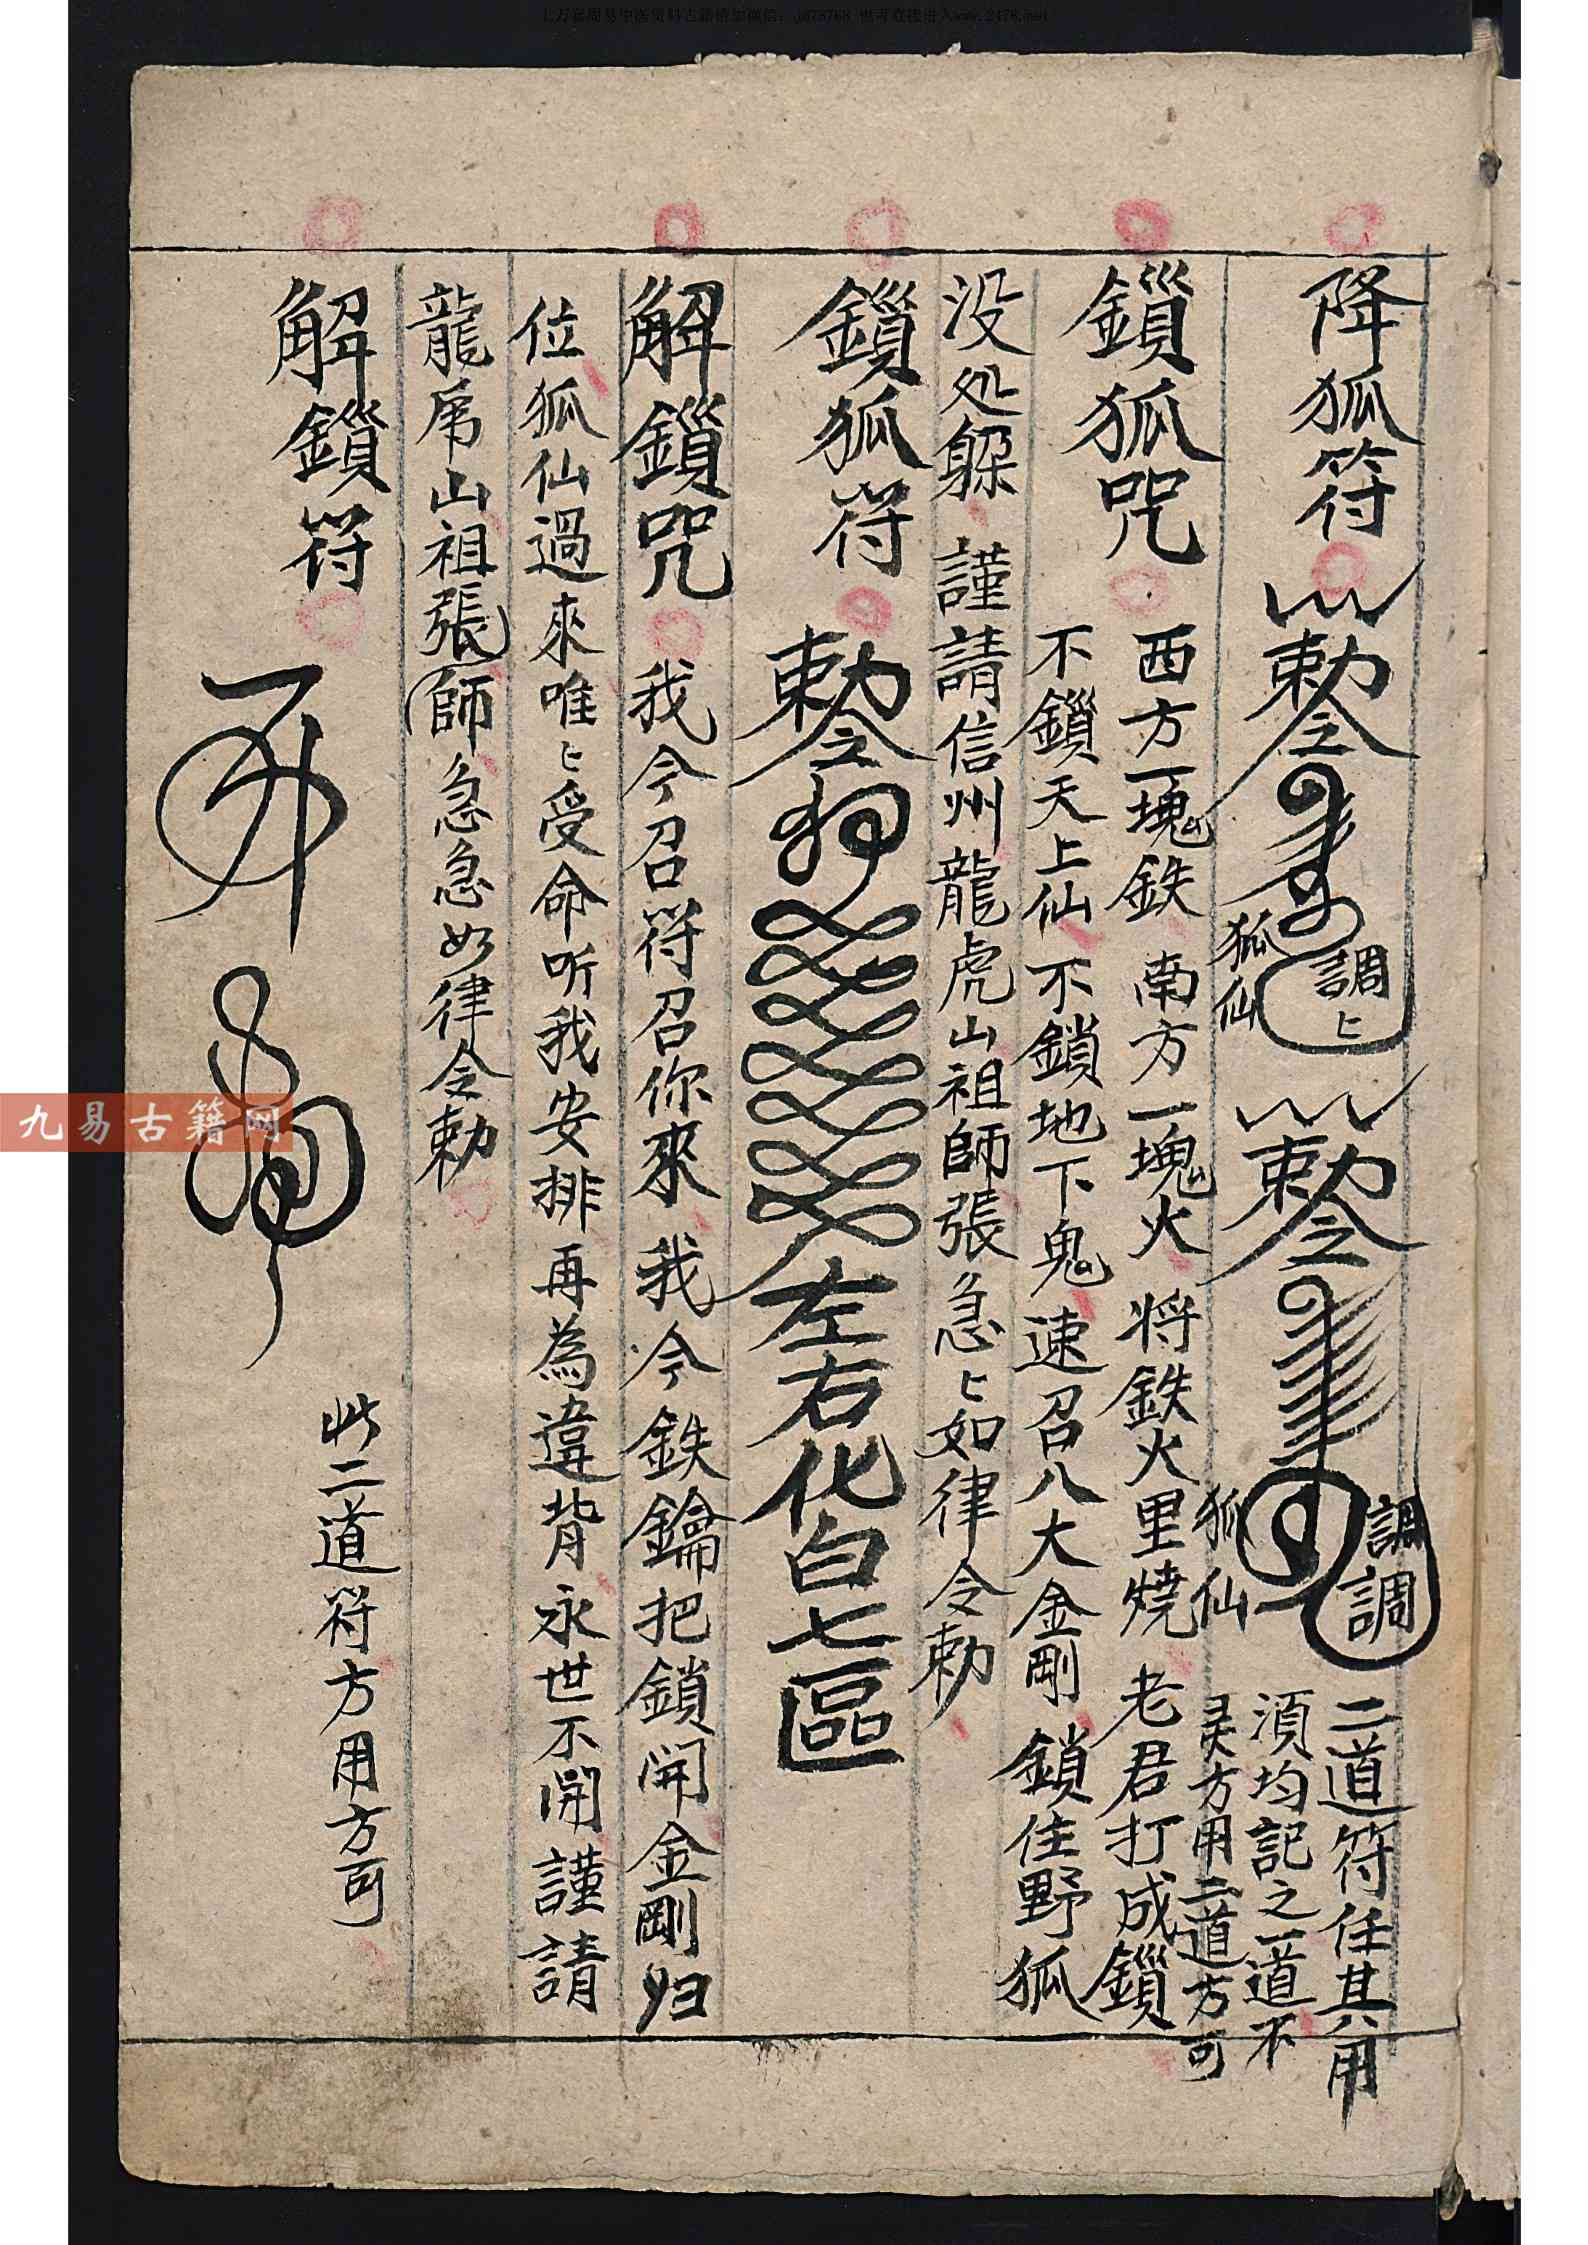 降狐符
勅令
狐仙
調ヒ
勅令
狐仙
調調
二道符任其用
須均記之一道不
灵方用二道方可
鎖狐咒
西方一塊鉄 南方一塊火 将鉄火里燒 老君打成鎖
不鎖天上仙 不鎖地下鬼 速召八大金剛 鎖住野狐
没処躲 謹請信州龍虎山祖師張急ヒ如律令勅
鎖狐符
勅令
左右化白七區
解鎖咒 我今召符召你來 我今鉄鑰把鎖開金剛归
位狐仙過來唯ヒ受命听我安排再為違背永世不開謹請
龍虎山祖張師急急如律令勅
解鎖符
此二道符方用方可
九易古籍网